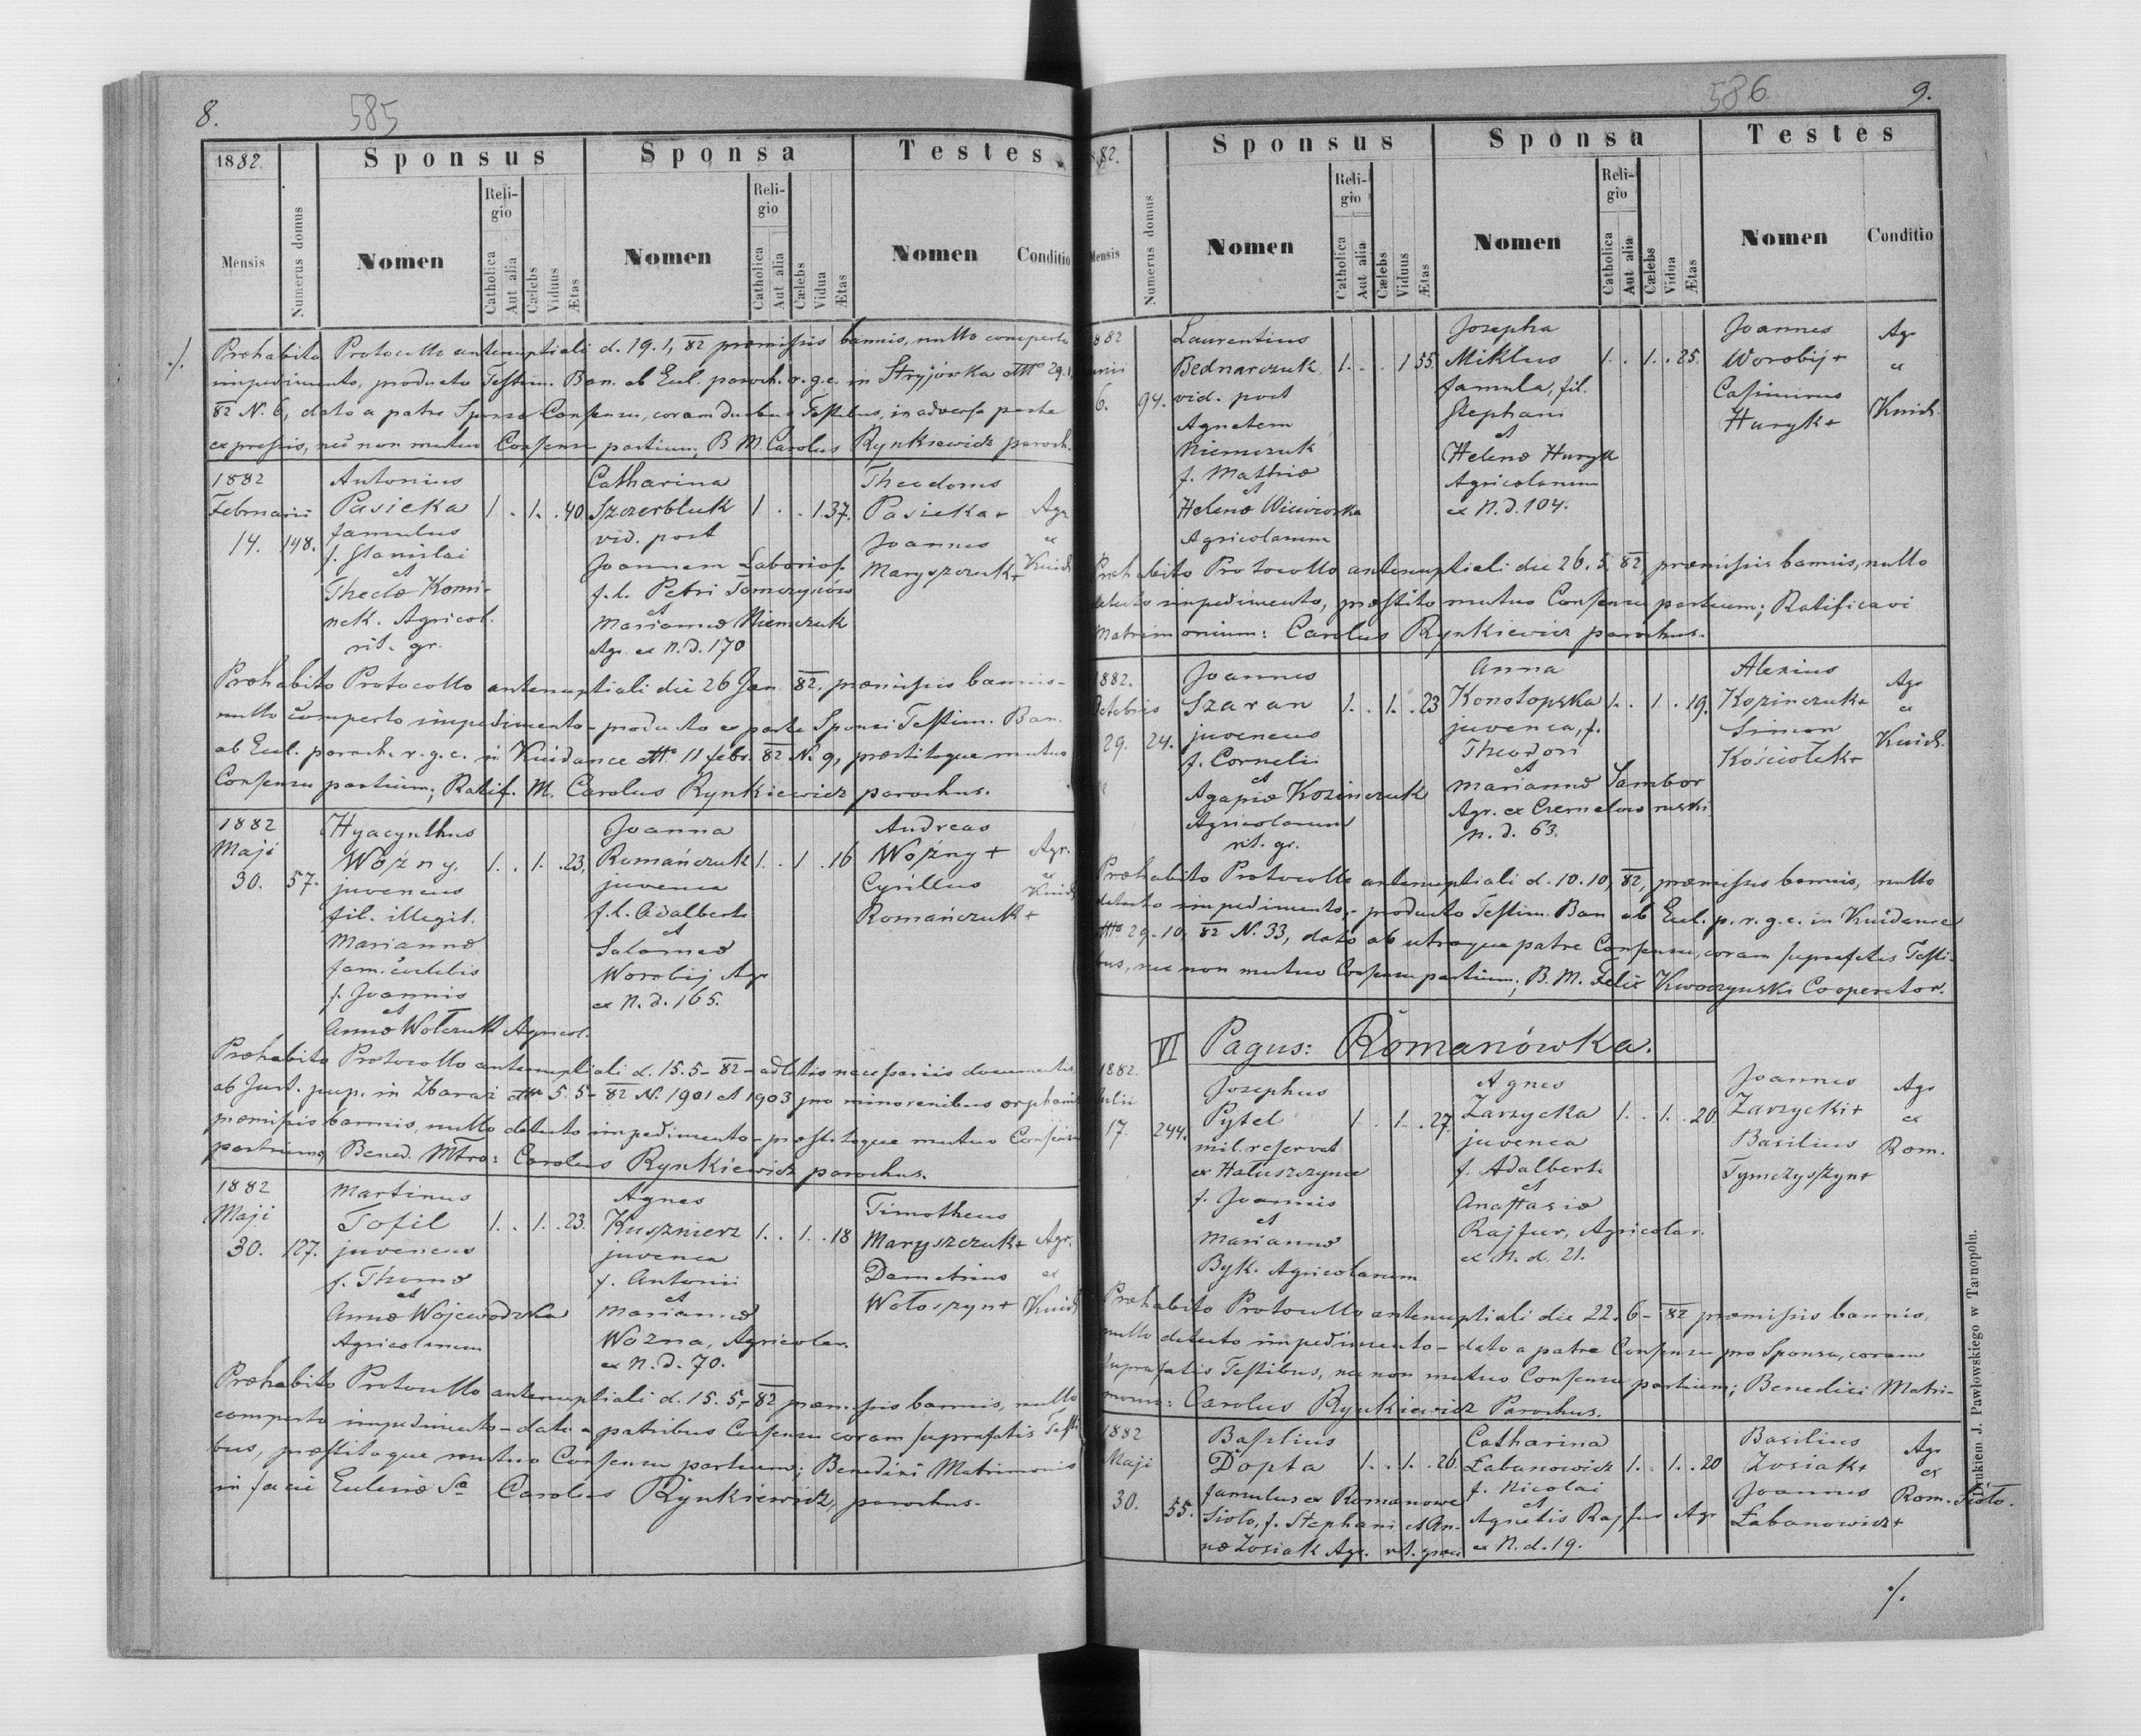 8.
585
1882.
Sponsus
Sponsa
Testes
Mensis
Numerus domus
Nomen
Religio
Catholica
Aut alia
Cælebs
Viduus
Ætas
Nomen
Religio
Catholica
Aut alia
Cælebs
Vidua
Ætas
Nomen
Conditio
./.
Præhabito Protocollo antenuptiali d. 19.1, 82 præmissis bannis, nullo comperto
impedimento, producto Testim. Ban. ab Eccl. paroch. r.g.c. in Stryjówka dtto 29.1,
82 N. 6, dato a patre Sponsæ Consensu, coram duobus Testibus, in adversa parte
expressis, nec non mutuo Consensu partium, B M. Carolus Rynkiewicz paroch.
1882
Februarii
14.
148.
Antonius
Pasieka
famulus
f. Stanislai
et
Theclæ Komi-
nek. Agricol.
rit. gr.
1 . 1. .40
Catharina
Szczerbluk
vid. post
Joannem Laborios.
f. l. Petri Tomczyszów
et
Mariannæ Niemczuk
Agr. ex N.d.170
1 . .1 37.
Theodorus
Pasieka+
Joannes
Maryszczuk+
Agr
ex
Kuid.
Præhabito Protocollo antenuptiali die 26 Jan. 82. præmissis bannis-
nullo comperto impedimento- producto ex parte Sponsi Testim. Ban.
ab Eccl. paroch. r.g.c. in Kuidance dtto. 11 febr. 82 N. 9, præstitoque mutuo
Consensu partium; Ratif. M. Carolus Rynkiewicz parochus.
1882
Maji
30.
57.
Hyacynthus
Woźny.
juvencus
fil. illegit.
Mariannæ
fam. cælibis
f. Joannis
et
Annæ Wołczuk Agricol.
1. . 1. .23,
Joanna
Romańczuk
juvenca
f.l. Adalberti
et
Salomeæ
Worobij Agr
ex N.d.165.
1. . 1 .16
Andreas
Woźny +
Cyrillus
Romańczuk+
Agr.
ex
Kuid.
Præhabito Protocollo antenuptiali d. 15.5-82- adlatis necessariis documentis,
ab Jud. pup. in Zbaraż dtto 5.5-82 N. 1901 et 1903 pro minorenibus orphanis
præmissis bannis, nullo detecto impedimento- præstitoque mutuo Consensu
partium; Bened. Mtro: Carolus Rynkiewicz parochus.
1882
Maji
30.
127.
Martinus
Tofil
juvencus
f. Thomæ
et
Annæ Wojewodzka
Agricolarum
1. . 1. .23.
Agnes
Kusznierz
juvenca
f. Antonii
et
Mariannæ
Wozna, Agricolar.
ex N.d.70.
1. . 1. .18
Timotheus
Maryszczuk+
Demetrius
Wołoszyn+
Agr.
ex
Kuid.
Præhabito Protocollo antenuptiali d. 15.5.-82 præmissis bannis, nullo
comperto impedimento- dato a patribus Consensu coram suprafatis Testi
bus, præstitoque mutuo Consensu partium; Benedixi Matrimonio
in facie Ecclesiæ Sæ Carolus Rynkiewicz, parochus.
586
9.
1882.
Sponsus
Sponsa
Testes
Mensis
Numerus domus
Nomen
Religio
Catholica
Aut alia
Cælebs
Viduus
Ætas
Nomen
Religio
Catholica
Aut alia
Cælebs
Vidua
Ætas
Nomen
Conditio
1882
Junii
6.
94.
Laurentius
Bednarczuk
vid. post
Agnetem
Niemczuk
f. Mathiæ
et
Helenæ Wiewiorska
Agricolarum
1. . . 1 55.
Josepha
Miklus
famula, fil.
Stephani
et
Helenæ Huryk
Agricolarum
ex N.d.104.
1. . 1. .25.
Joannes
Worobij+
Casimirus
Huryk+
Agr
ex
Kuid.
Præhabito Protocollo antenuptiali die 26.5, 82, præmissis bannis, nullo
detecto impedimento, præstito mutuo Consensu partium; Ratificavi
Matrimonium: Carolus Rynkiewicz parochus.
1882.
Octobris
29.
24.
Joannes
Szaran
juvencus
f. Cornelii
et
Agapiæ Kozińczuk
Agricolarum
rit. gr.
1. . 1. .23
Anna
Konotopska
juvenca, f.
Theodori
et
Mariannæ Sambor
Agr. ex Czernelow ruski
N.d. 63.
1. . 1 .19.
Alexius
Kozinczuk+
Simon
Kościołek+
Agr
ex
Kuid.
Præhabito Protocollo antenuptiali d. 10.10, 82, præmissis bannis, nullo
detecto impedimento,- producto Testim. Ban ab Eccl. p.r.g.c. in Kuidance
dtto 29.10, 82 N. 33, dato ab utroque patre Consensu, coram suprafatis Testi-
bus, nec non mutuo Consensu partium; B. M. Felix Kwoczynski Cooperator.
VI
Pagus: Romanówka.
1882.
Julii
17.
244.
Josephus
Pytel
mil. reservat
ex Hałuszczyńce
f. Joannis
et
Mariannæ
Byk. Agricolarum
1 . 1. .27.
Agnes
Zarzycka
juvenca
f. Adalberti
et
Anastasiæ
Rajfur, Agricolar.
ex N.d. 21.
1. . 1. .20.
Joannes
Zarzycki+
Basilius
Tymczyszyn+
Agr
ex
Rom.
Præhabito Protocollo antenuptiali die 22.6-82 præmissis bannis,
nullo detecto impedimento- dato a patre Consensu pro Sponsa, coram
suprafatis Testibus, nec non mutuo Consensu partium; Benedixi Matri-
monio: Carolus Rynkiewicz Parochus.
1882
Maji
30.
55.
Basilius
Dopta
famulus ex Romanowe
Sioło, f. Stephani et An-
næ Zosiak Agr. rit. græci
1. . 1. .26.
Catharina
Łabanowicz
f. Nicolai
et
Agnetis Rajfur Agr
ex N.d.19.
1. . 1. .20
Basilius
Zosiak+
Joannes
Łabanowicz+
Agr
ex
Rom. Sioło.
Drukiem J. Pawłowskiego w Tarnopolu.
./.